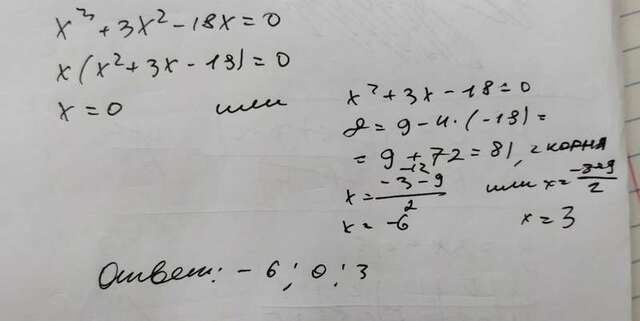 x³ + 3x² - 18x = 0
x(x² + 3x - 18) = 0
x = 0 или x² + 3x - 18 = 0
D = 9 - 4·(-18) =
= 9 + 72 = 81, 2 корня
-12
x = (-3 - 9)/2 или x = (-3+9)/2
x = -6 x = 3
Ответ: -6; 0; 3